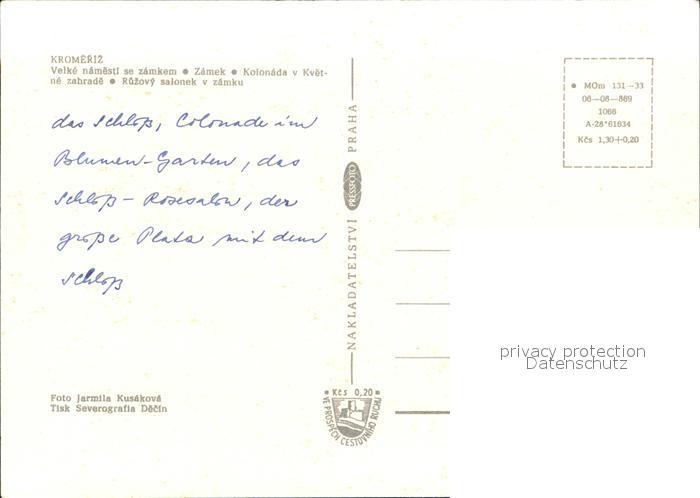 KROMĚŘÍŽ
Velké náměstí se zámkem ● Zámek ● Kolonáda v Květ-
né zahradě ● Růžový salonek v zámku
das Schloß, Colonade im
Blumen-Garten, das
Schloß - Rosesalon, der
große Platz mit dem
Schloß
Foto Jarmila Kusáková
Tisk Severografia Děčín
NAKLADATELSTVÍ PRESSFOTO PRAHA
Kčs 0,20
VE PROSPĚCH CESTOVNÍHO RUCHU
● MOm 131—33
06—08—869
1066
A-28*61634
Kčs 1,30+0,20
privacy protection
Datenschutz